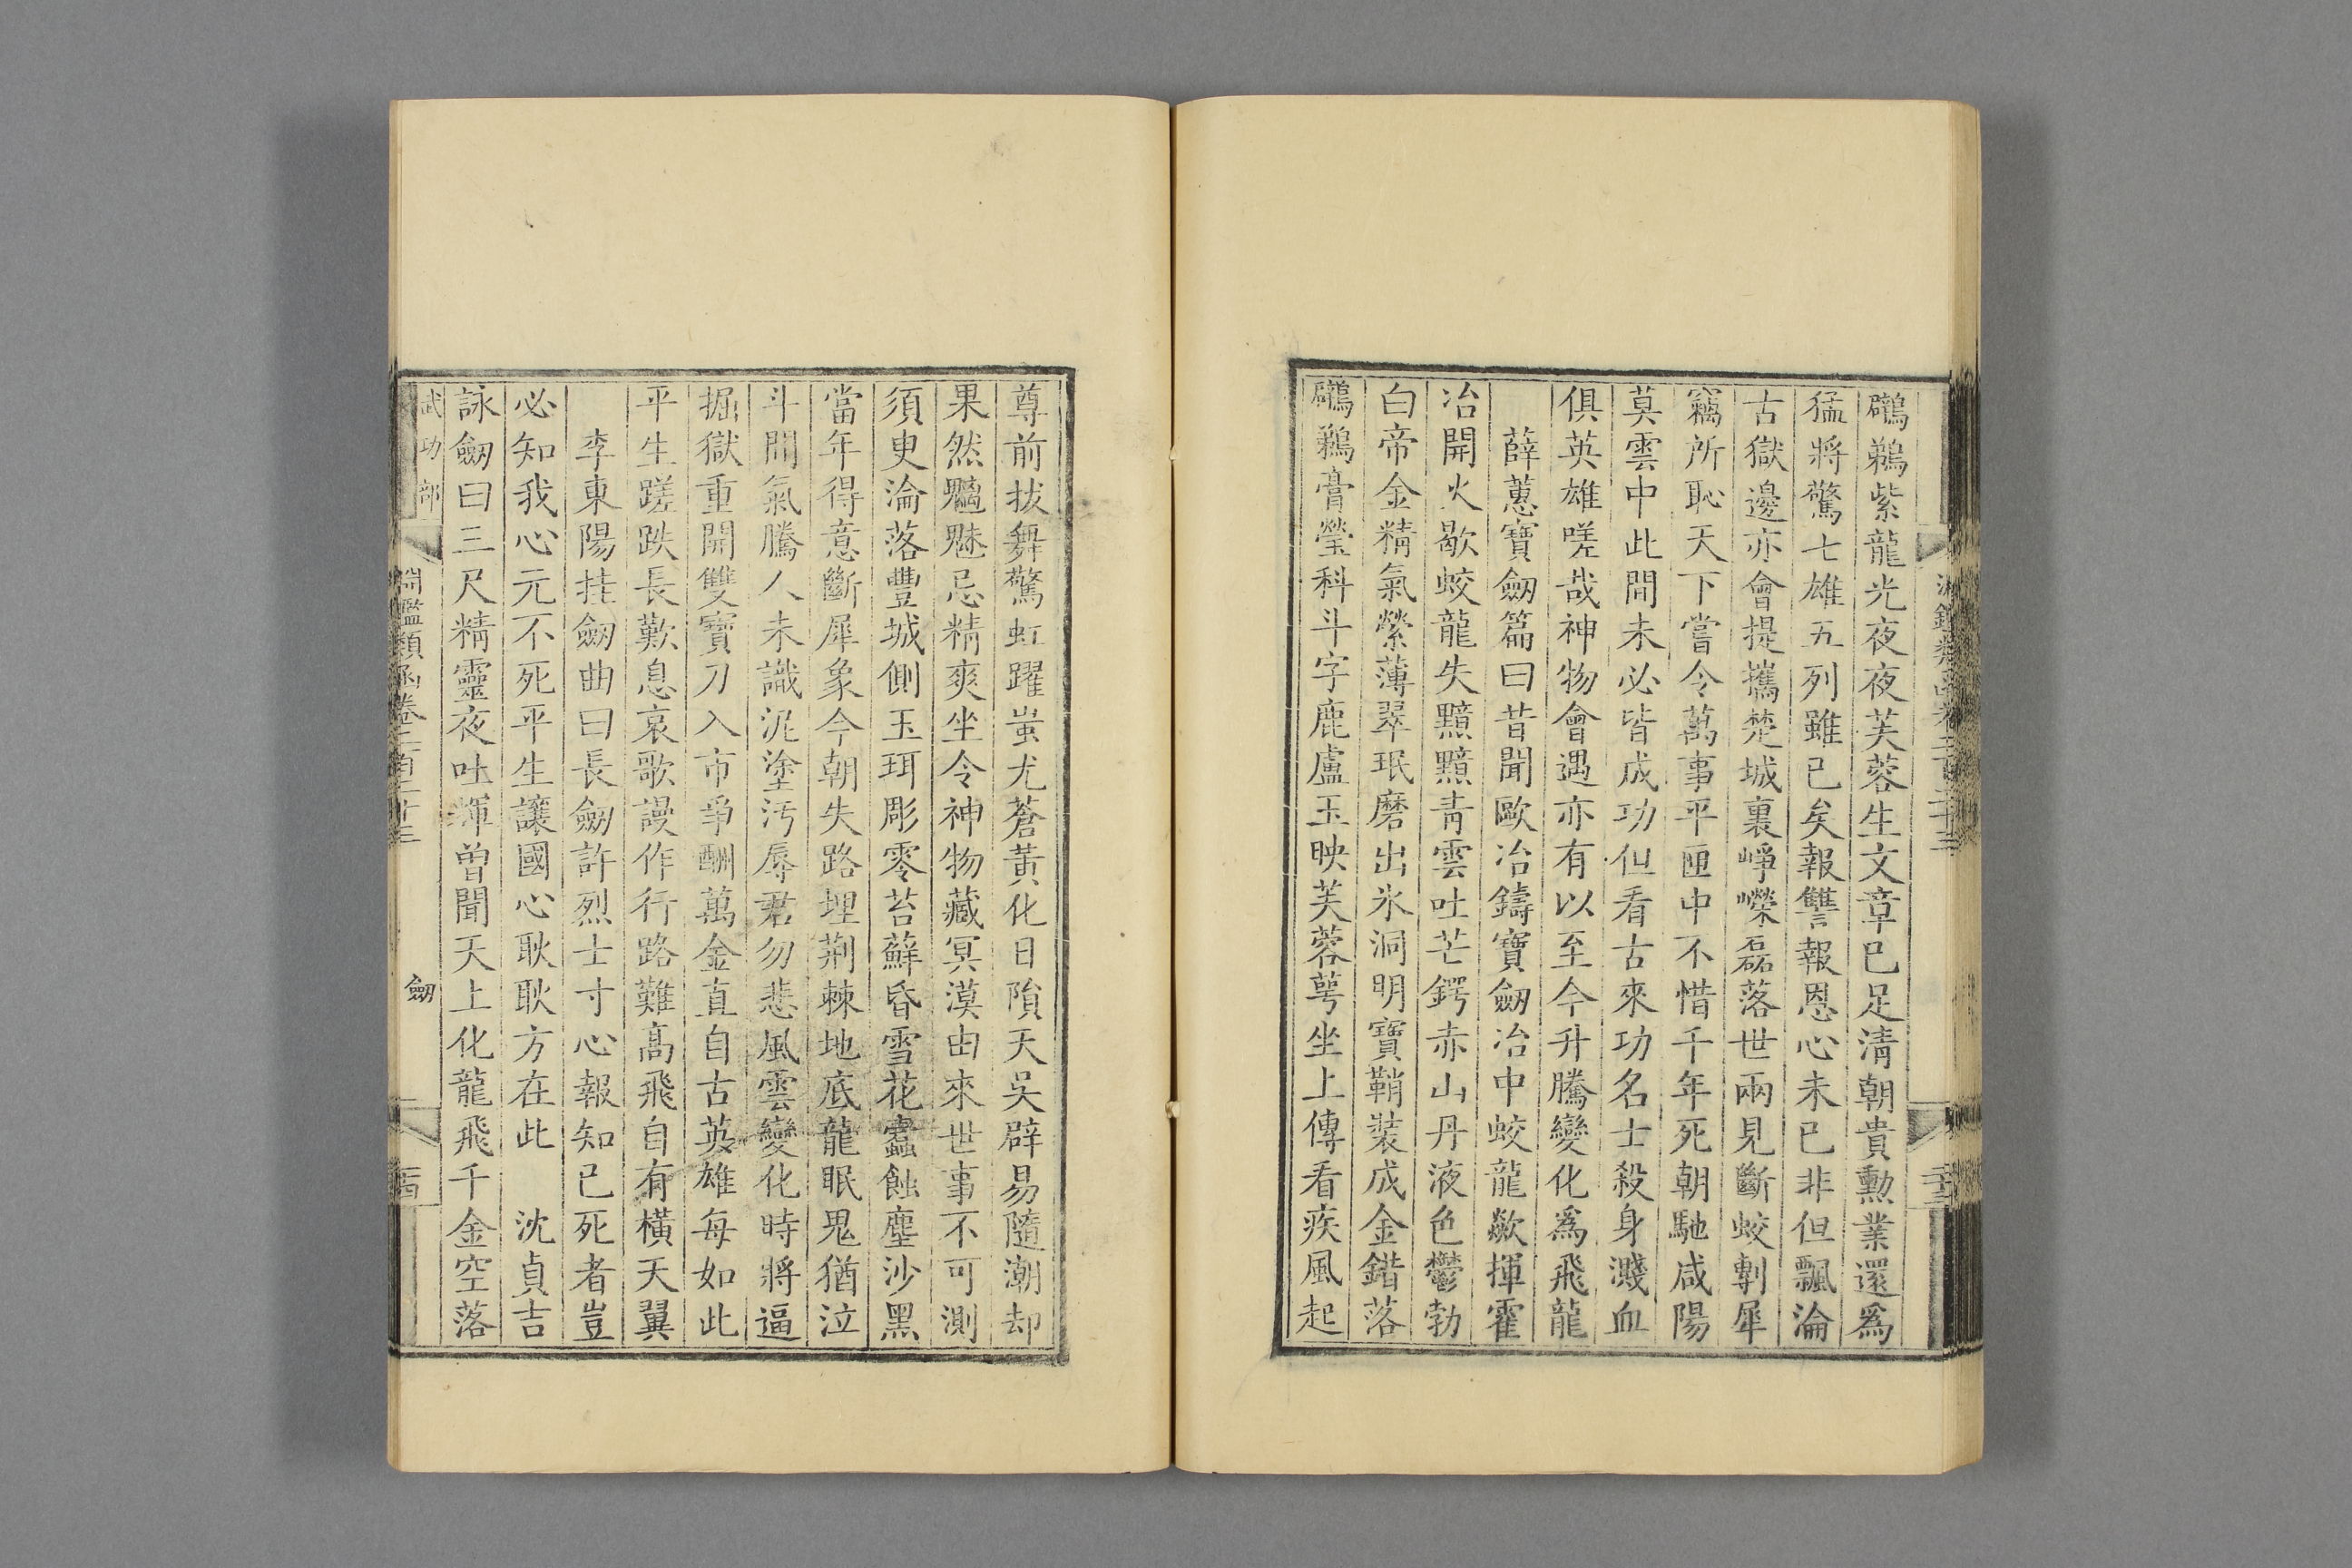 鸊鵜紫龍光夜夜芙蓉生文章已足清朝貴勲業還爲
猛將驚七雄五列雖已矣報讐報恩心未已非但飄淪
古獄邊亦會提攜楚城裏崢嶸磊落世兩見斷蛟剸犀
竊所恥天下嘗令萬事平匣中不惜千年死朝馳咸陽
莫雲中此間未必皆成功但看古來功名士殺身濺血
俱英雄嗟哉神物會遇亦有以至今升騰變化爲飛龍
薛蕙寶劒篇曰昔聞歐冶鑄寶劒冶中蛟龍欻揮霍
冶開火歇蛟龍失黯黮青雲吐芒鍔赤山丹液色鬱勃
白帝金精氣縈薄翠珉磨出氷洞明寶鞘裝成金錯落
鸊鵜膏瑩科斗字鹿盧玉映芙蓉萼坐上傳看疾風起
尊前拔舞驚虹躍蚩尤蒼黃化日隕天吳辟易隨潮却
果然魑魅忌精爽坐令神物藏冥漠由來世事不可測
須臾淪落豐城側玉珥彫零苔蘚昏雪花蠹蝕塵沙黑
當年得意斷犀象今朝失路埋荆棘地底龍眠鬼猶泣
斗間氣騰人未識泥塗汚辱君勿悲風雲變化時將逼
掘獄重開雙寶刀入市爭酬萬金直自古英雄每如此
平生蹉跌長歎息哀歌謾作行路難高飛自有橫天翼
李東陽挂劒曲曰長劒許烈士寸心報知已死者豈
必知我心元不死平生讓國心耿耿方在此　沈貞吉
詠劒曰三尺精靈夜吐輝曾聞天上化龍飛千金空落
武功部
淵鑑類函卷二百二十三
劒